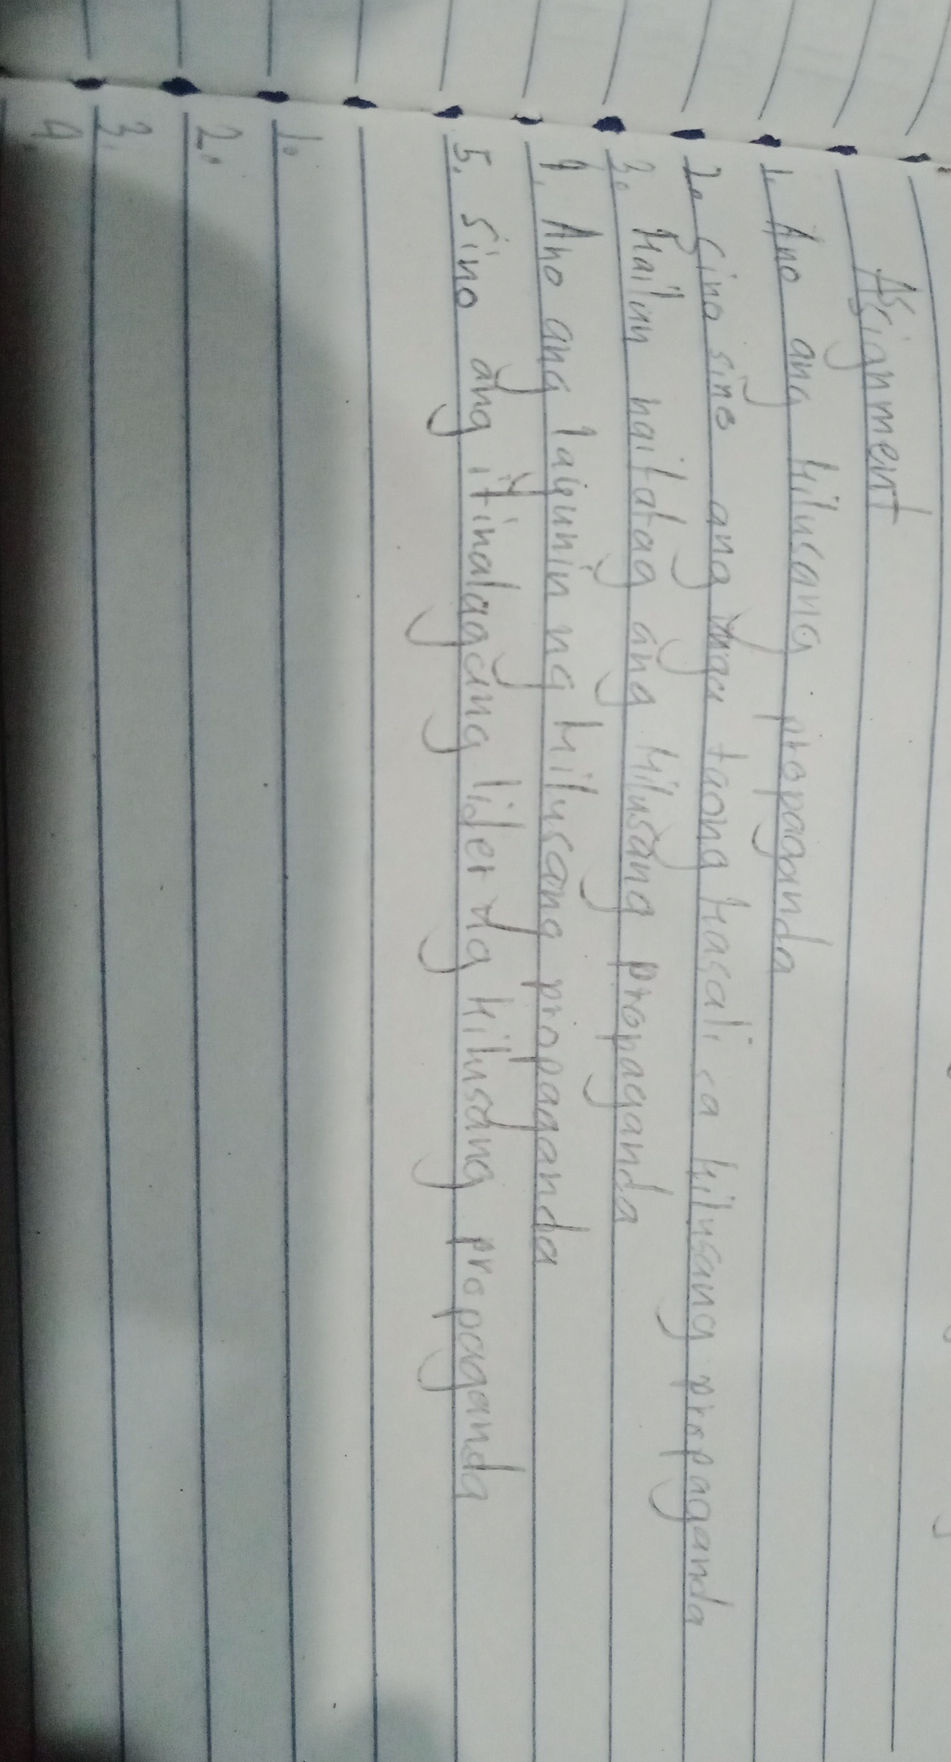 Assignment
1. Ano ang kilusang propaganda
2. sino sino ang mga taong kasali sa kilusang propaganda
3. Kailan naitatag ang kilusang propaganda
4. Ano ang layunin ng kilusang propaganda
5. sino ang itinalagang lider ng kilusang propaganda
1.
2.
3.
4